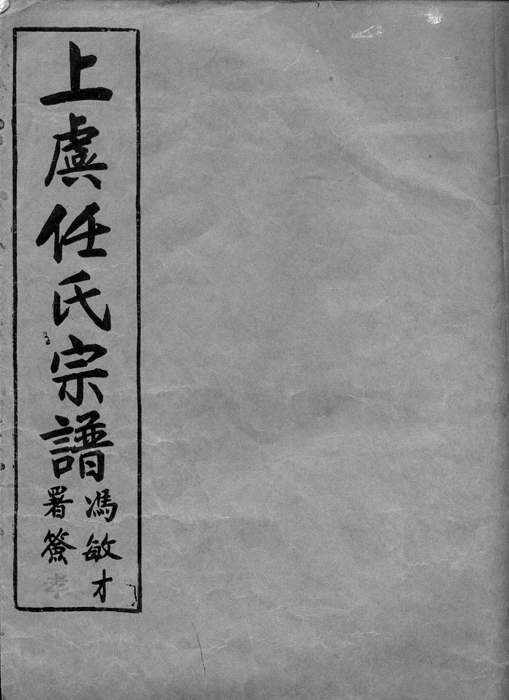 上虞任氏宗譜
馮敏才
署簽